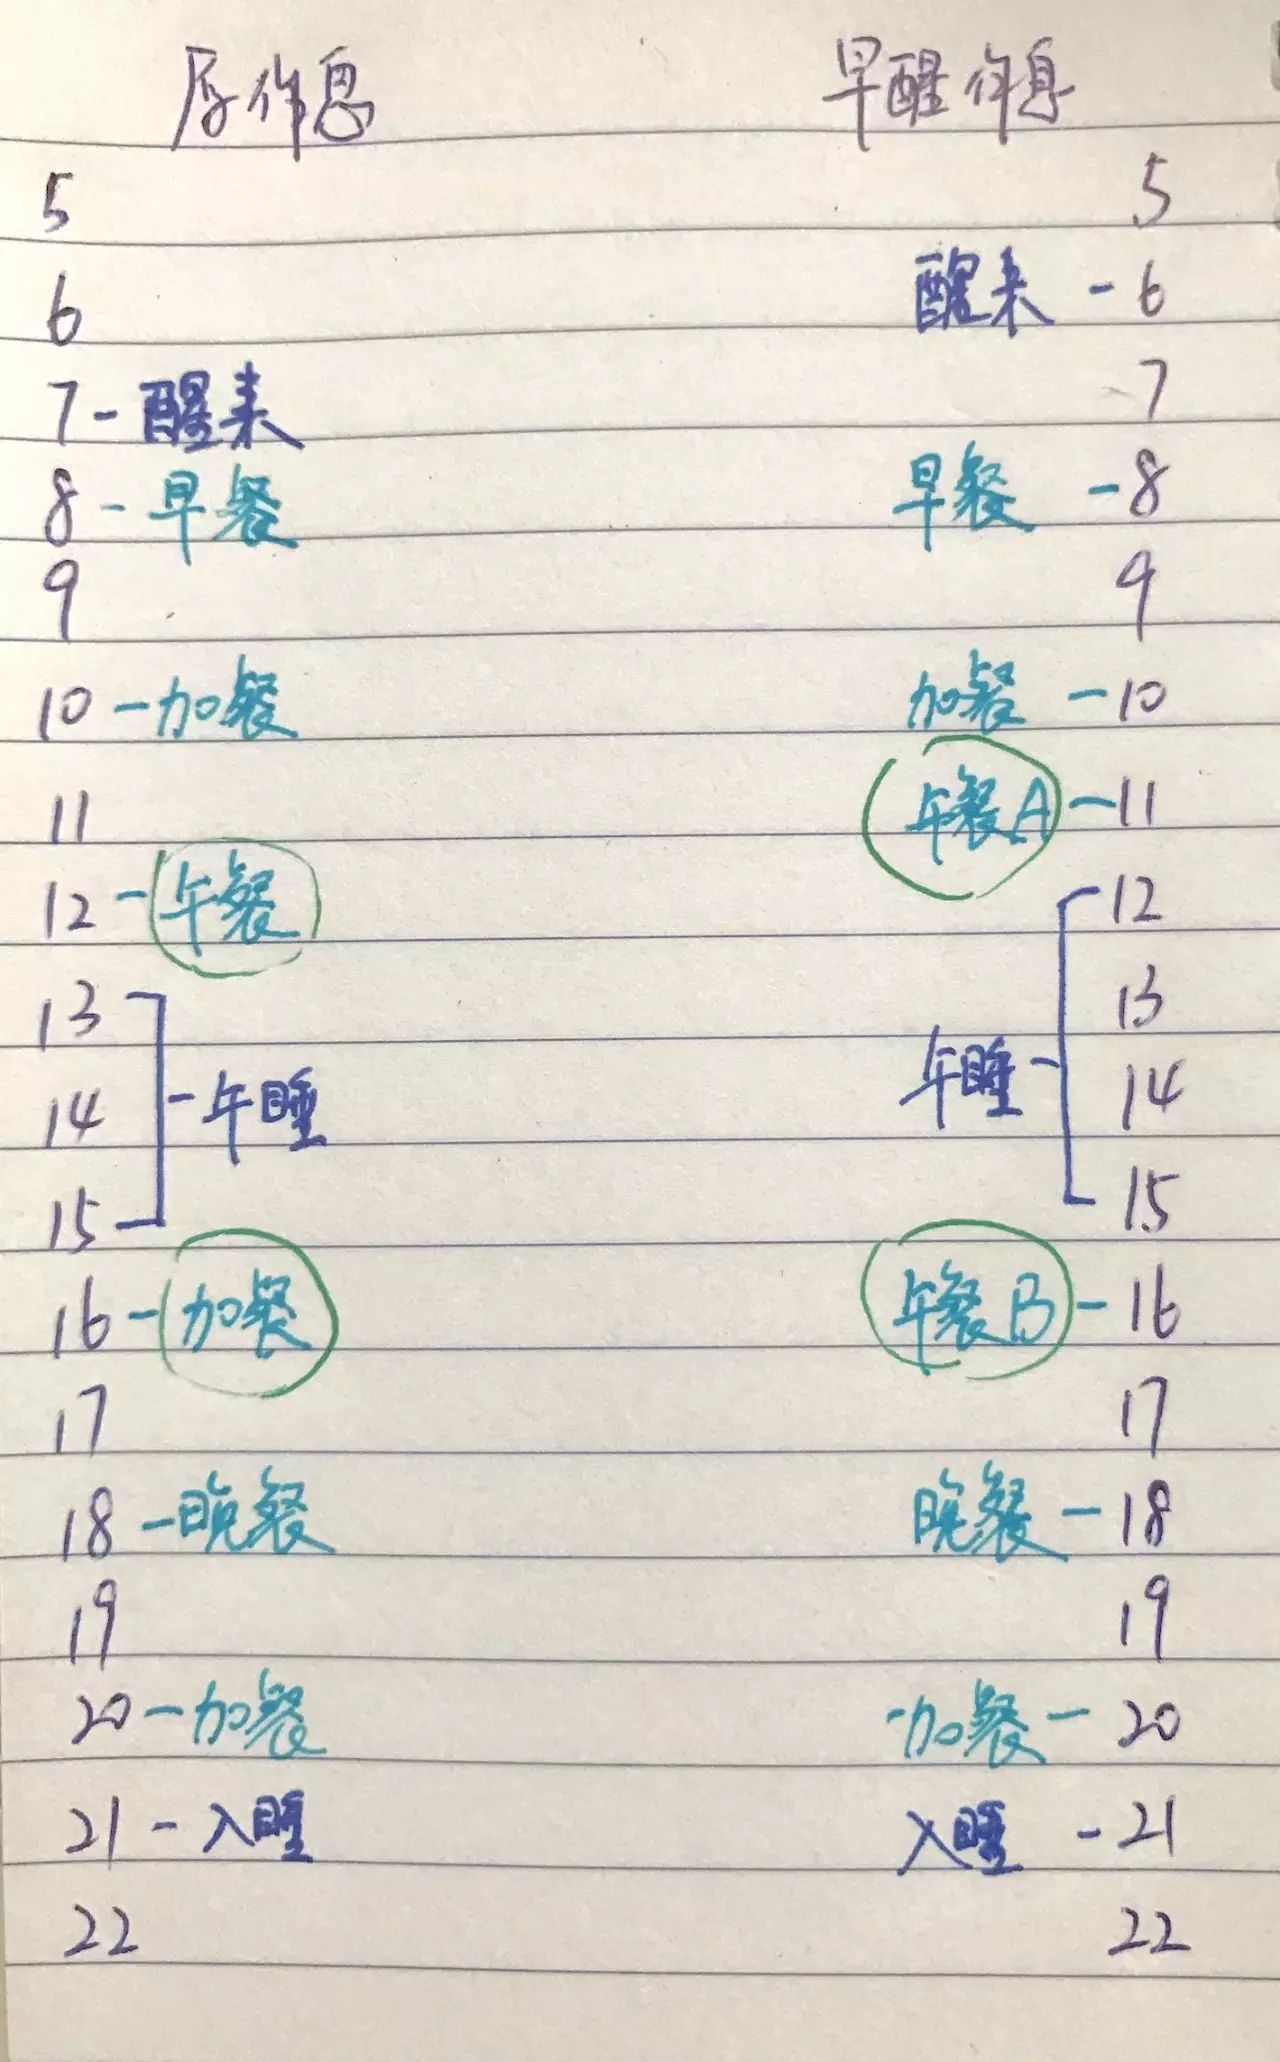 原作息 早醒作息
5 5
6 醒来 - 6
7 - 醒来 7
8 - 早餐 早餐 - 8
9 9
10 - 加餐 加餐 - 10
11 午餐A - 11
12 - 午餐 12
13 13
14 - 午睡 午睡 - 14
15 15
16 - 加餐 午餐B - 16
17 17
18 - 晚餐 晚餐 - 18
19 19
20 - 加餐 加餐 - 20
21 - 入睡 入睡 - 21
22 22